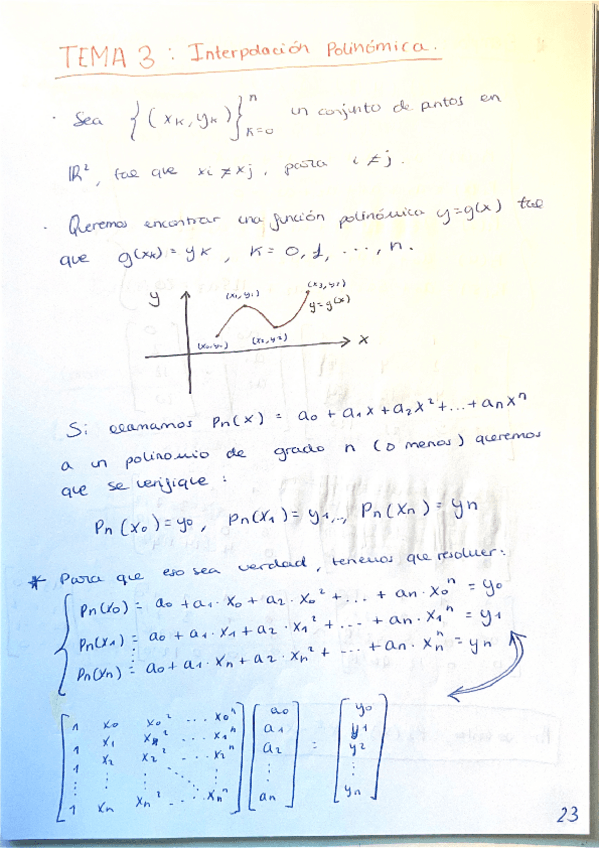 TEMA 3 : Interpolación Polinómica.
· Sea {(xk, yk)}ⁿk=0 un conjunto de puntos en
ℝ², tal que xi ≠ xj, para i ≠ j.
· Queremos encontrar una función polinómica y=g(x) tal
que g(xk) = yk , k = 0, 1, ..., n.
y
(x1, y1)
(x3, y3)
y=g(x)
(x0, y0)
(x2, y2)
x
Si llamamos Pn(x) = a0 + a1x + a2x² + ... + anxⁿ
a un polinomio de grado n (o menos) queremos
que se verifique :
Pn(x0) = y0, Pn(x1) = y1, .., Pn(xn) = yn
* Para que eso sea verdad, tenemos que resolver:
Pn(x0) = a0 + a1·x0 + a2·x0² + ... + an·x0ⁿ = y0
Pn(x1) = a0 + a1·x1 + a2·x1² + ... + an·x1ⁿ = y1
⋮
Pn(xn) = a0 + a1·xn + a2·xn² + ... + an·xnⁿ = yn
1 x0 x0² ... x0ⁿ a0 y0
1 x1 x1² ... x1ⁿ a1 y1
1 x2 x2² ... x2ⁿ a2 = y2
⋮ ⋮ ⋮ ⋱ ⋮ ⋮ ⋮
1 xn xn² ... xnⁿ an yn
23